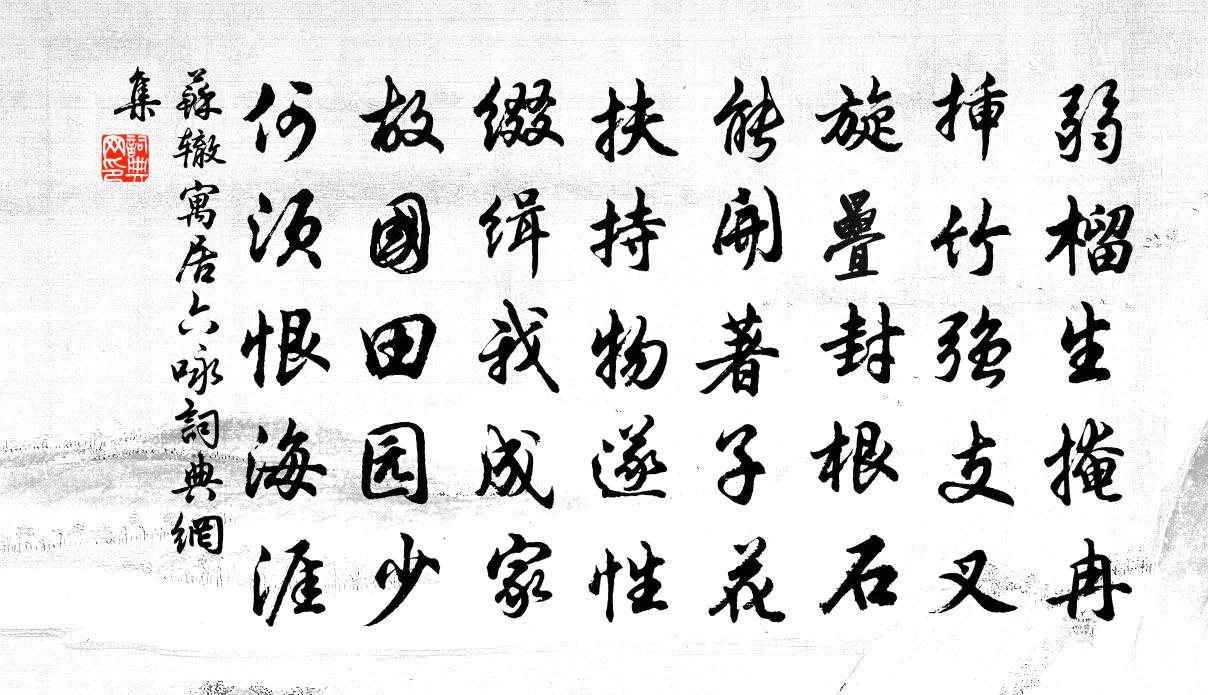 弱榴生掩冉
挿竹强支叉
旋疊封根石
能開著子花
扶持物遂性
缀缉我成家
故國田园少
何须恨海涯
蘇辙寓居六咏詞典網
集
詞典网印